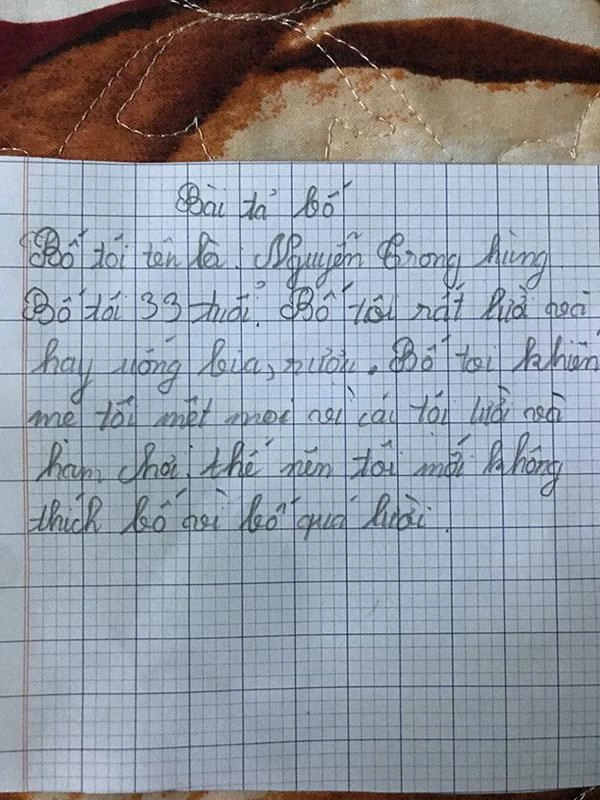 Bài tả bố
Bố tôi tên là: Nguyễn Trọng hùng
Bố tôi 33 tuổi. Bố tôi rất lười và
hay uống bia, rượu. Bố tôi khiến
mẹ tôi mệt mỏi vì cái tôi lười và
hàm chơi. thế nên tôi mới không
thích bố vì bố quá lười.